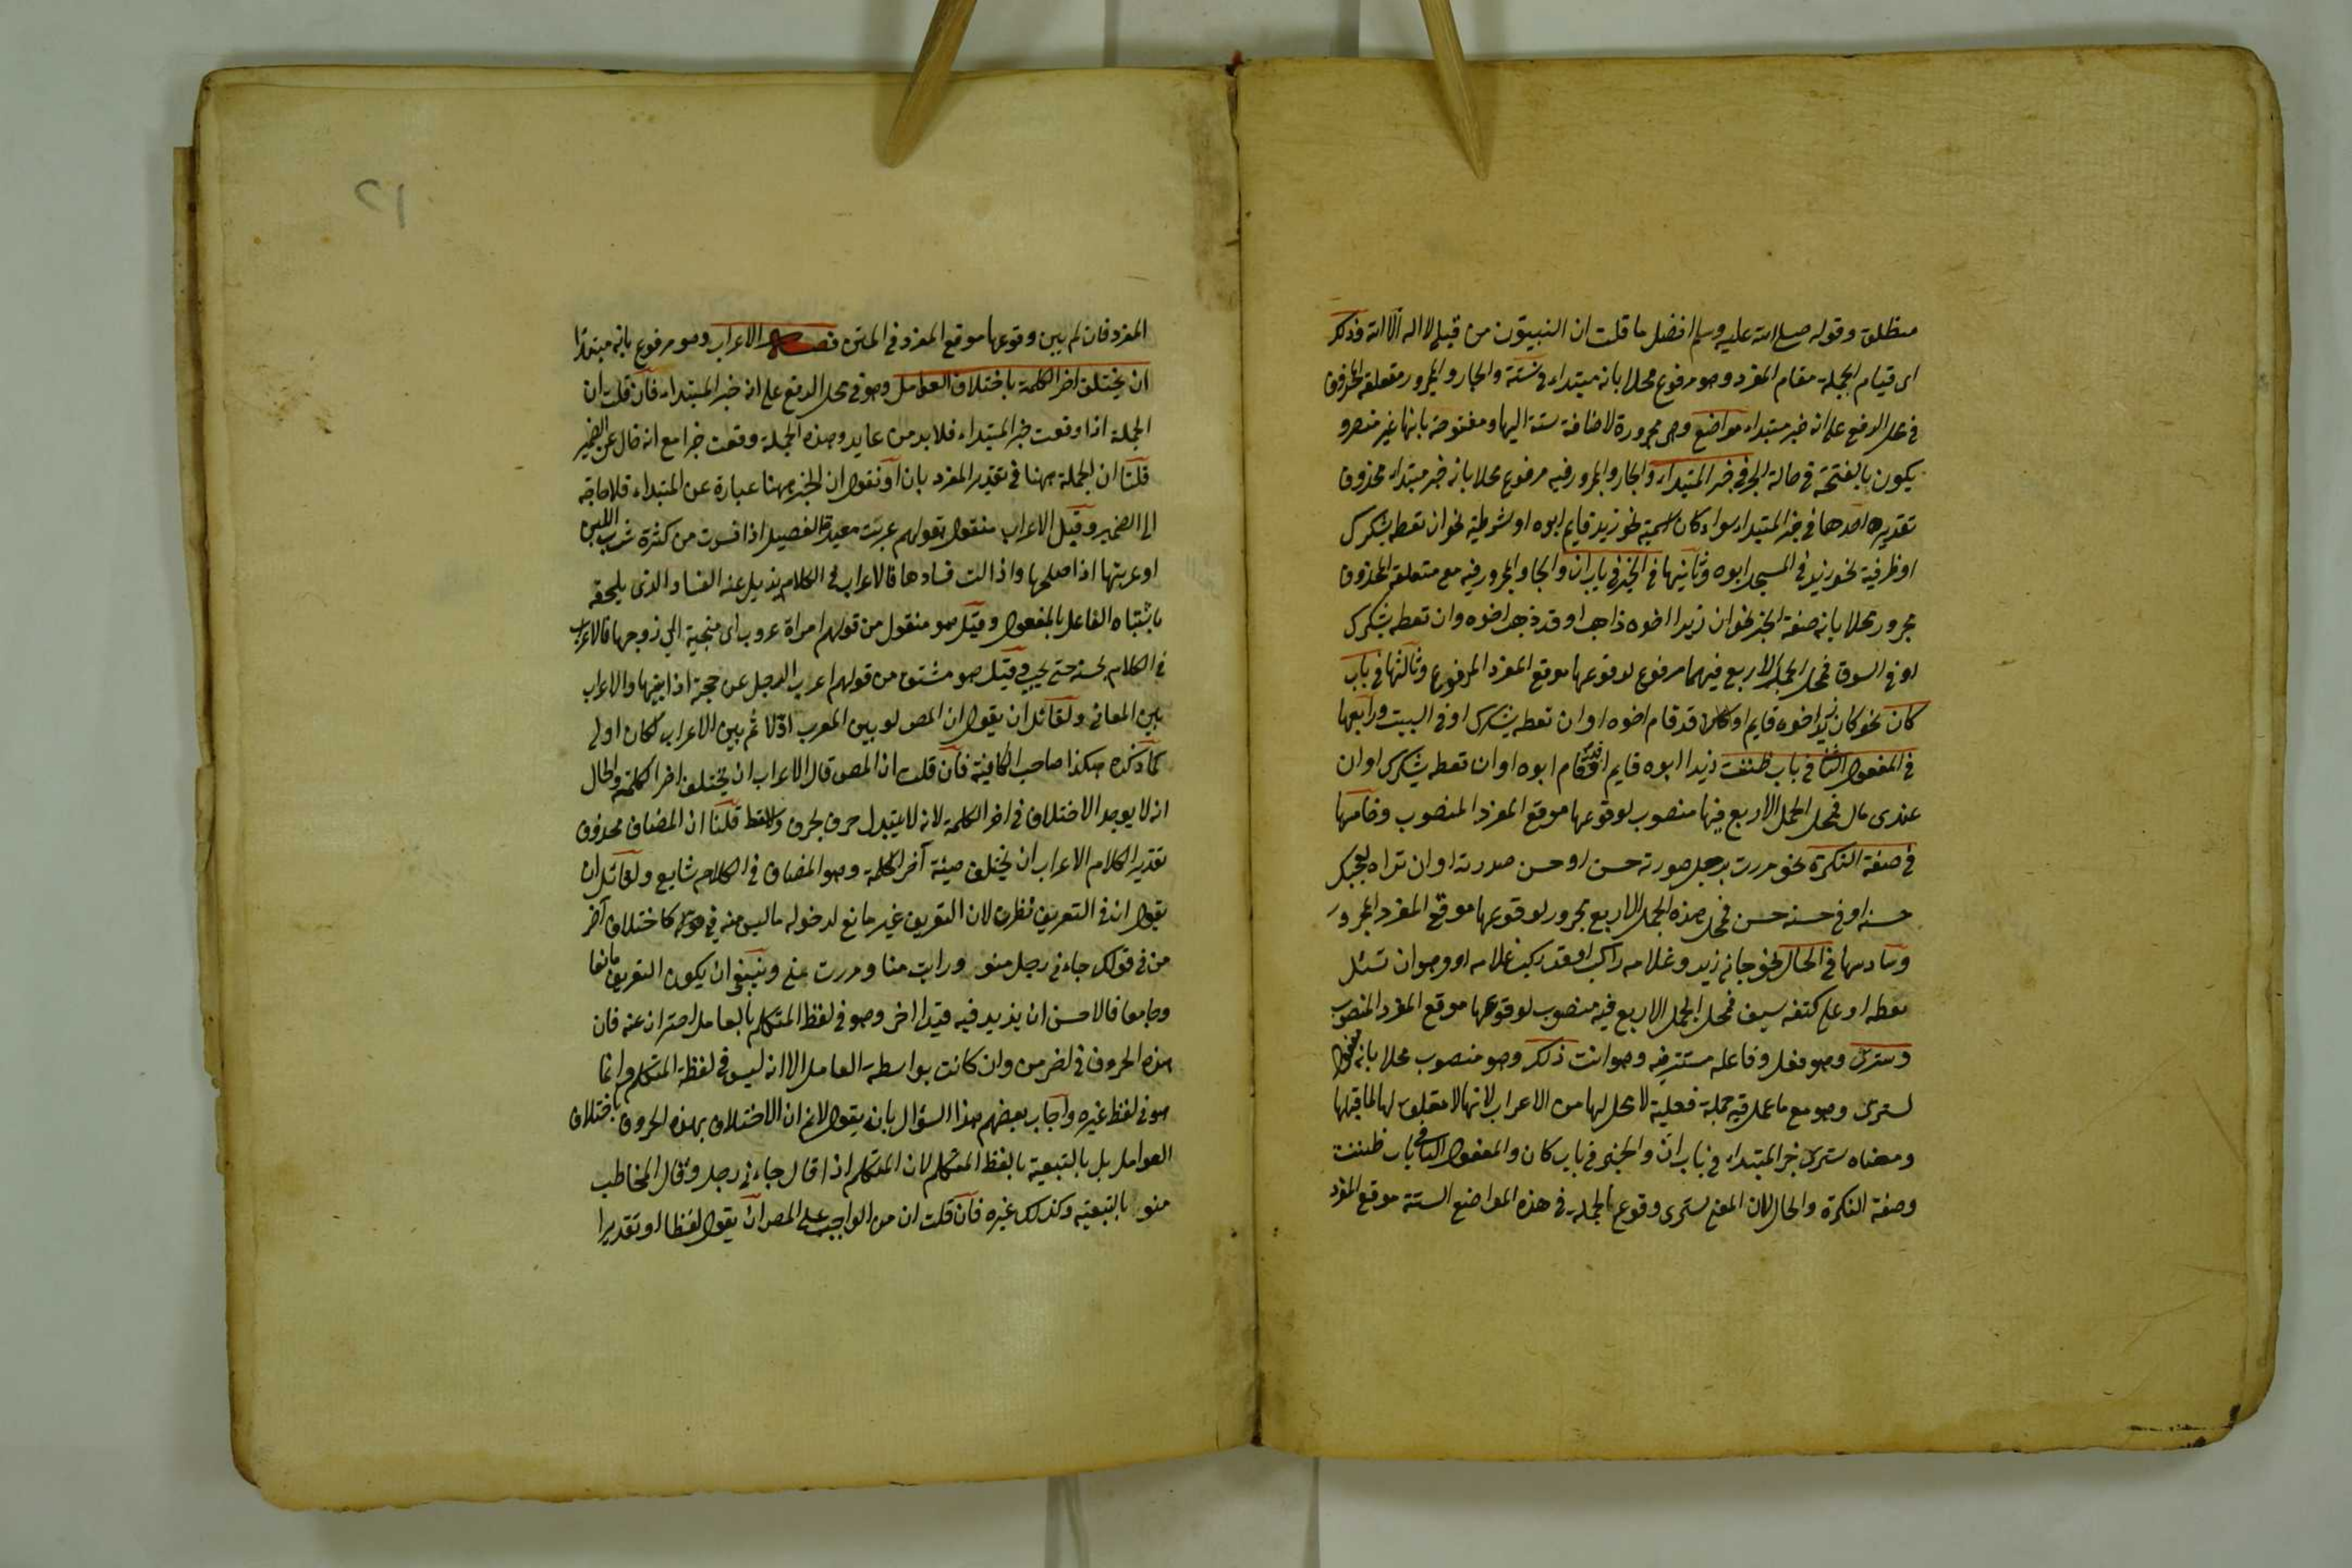 منطلق وقوله صلى الله عليه وسلم افضل ما قلت ان النبيون من قبلى لا اله الا الله فذلك
اى قيام الجملة مقام المفرد وهو مرفوع محلا بانه مبتداء فى ستة والجار والمجرور متعلقه المحذوف
فى محل الرفع على انه خبر مبتداء مواضع وهى مجرورة لاضافة ستة اليها ومفتوحة بانها غير منصرو
يكون بالفتحة فى حالة الجر فى خبر المبتداء والجار والمجرور فيه مرفوع محلا بانه خبر مبتداء محذوف
تقديره احدها فى خبر المبتداء سواء كان اسمية نحو زيد قايم ابوه او شرطية نحو ان تعطه يشكرك
او ظرفية نحو زيد فى المسجد ابوه وثانيها فى الخبر فى باب ان والجار والمجرور فيه مع متعلقه المحذوف
مجرور محلا بانه صفة الخبر نحو ان زيدا اخوه ذاهب او قد ذهب اخوه وان تعطه يشكرك
او فى السوق فمحل الجمل الاربع فيهما مرفوع لوقوعها موقع المفرد المرفوع وثالثها فى باب
كان نحو كان زيد اخوه قايم او كان قد قام اخوه او ان تعطه يشكرك او فى البيت ورابعها
فى المفعول الثانى فى باب ظننت زيدا ابوه قايم او قد قام ابوه او ان تعطه يشكرك او ان
عندى مال فمحل الجمل الاربع فيها منصوب لوقوعها موقع المفرد المنصوب وخامسها
فى صفة النكرة نحو مررت برجل صورته حسن او حسن صورته او ان تراه يعجبك
حسنه او فى حسنه حسن فمحل هذه الجمل الاربع مجرور لوقوعها موقع المفرد المجرور
وسادسها فى الحال نحو جانى زيد وغلامه راكب او قد ركب غلامه او وهو ان تسئل
تعطه او على كتفه سيف فمحل الجمل الاربع فيه منصوب لوقوعها موقع المفرد المنصوب
وسترى وهو فعل وفاعله مستتر فيه وهو انت ذلك وهو منصوب محلا بانه مفعول
لسترى وهو مع ما عمل فيه جملة فعلية لا محل لها من الاعراب لانها لا متعلق لها لما قبلها
ومعناه سترى خبر المبتداء فى باب ان والخبر فى باب كان والمفعول الثانى فى باب ظننت
وصفة النكرة والحال لان المعنى سترى وقوع الجملة فى هذه المواضع الستة موقع المفرد
١٢
المفرد فان لم يبين وقوعها موقع المفرد فى المتن فصل الاعراب وهو مرفوع بانه مبتدأ
ان يختلف اخر الكلمة باختلاف العوامل وهو فى محل الرفع على انه خبر المبتداء فان قلت ان
الجملة اذا وقعت خبر المبتداء فلا بد من عايد وهذه الجملة وقعت خبرا مع انه خال عن الضمير
قلنا ان الجملة ههنا فى تقدير المفرد بان او نقول ان الخبر ههنا عبارة عن المبتداء فلا حاجة
الى الضمير وقيل الاعراب منقول بقولهم عربت معدة الفصيل اذا فسدت من كثرة شرب اللبن
او عربتها اذا اصلحها واذالت فسادها فالاعراب فى الكلام يزيل عنه الفساد الذى يلحقه
باشتباه الفاعل بالمفعول وقيل هو منقول من قولهم امراة عروب اى متحببة الى زوجها فالاعراب
فى الكلام يحسنه حتى يحبب وقيل هو مشتق من قولهم اعرب الرجل عن حجته اذا بينها والاعراب
يبين المعانى ولقائل ان يقول ان المص لو بين المعرب اولا ثم بين الاعراب لكان اولى
كما ذكره هكذا صاحب الكافية فان قلت ان المص قال الاعراب ان يختلف اخر الكلمة والحال
انه لا يوجد الاختلاف فى اخر الكلمة لانه لا يتبدل حرف بحرف قلنا ان المضاف محذوف
تقدير الكلام الاعراب ان يختلف هيئة آخر الكلمة وهو المضاف فى الكلام شايع ولقائل ان
يقول ان فى التعريف نظرا لان التعريف غير مانع لدخوله ما ليس منه فى كاختلاف آخر
من فى قولك جاءنى رجل منو ورايت منا ومررت منى وينبغى ان يكون التعريف مانعا
وجامعا فالاحسن ان يزيد فيه قيدا اخر وهو فى لفظ المتكلم بالعامل احترازا عنه فان
هذه الحروف فى اخر من وان كانت بواسطة العامل الا انه ليس فى لفظة المتكلم وانما
هو فى لفظ غيره واجاب بعضهم هذا السؤال بانه يقول لانم ان الاختلاف بهذه الحروف باختلاف
العوامل بل بالتبعية بالفظ المتكلم لان المتكلم اذا قال جاءنى رجل وقال المخاطب
منو بالتبعية وكذلك غيره فان قلت ان من الواجب على المص ان يقول لفظا او تقديرا